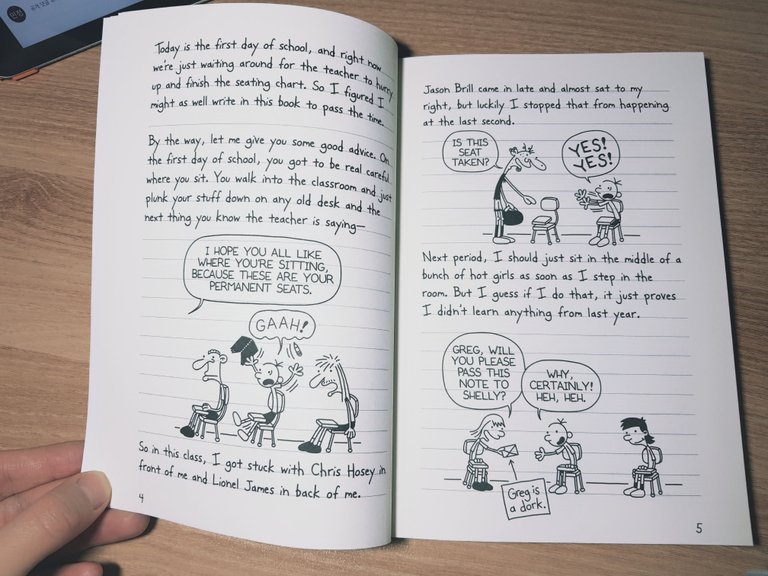 Today is the first day of school, and right now
we're just waiting around for the teacher to hurry
up and finish the seating chart. So I figured I
might as well write in this book to pass the time.
By the way, let me give you some good advice. On
the first day of school, you got to be real careful
where you sit. You walk into the classroom and just
plunk your stuff down on any old desk and the
next thing you know the teacher is saying—
I HOPE YOU ALL LIKE
WHERE YOU'RE SITTING,
BECAUSE THESE ARE YOUR
PERMANENT SEATS.
GAAH!
So in this class, I got stuck with Chris Hosey in
front of me and Lionel James in back of me.
4
Jason Brill came in late and almost sat to my
right, but luckily I stopped that from happening
at the last second.
IS THIS
SEAT
TAKEN?
YES!
YES!
Next period, I should just sit in the middle of a
bunch of hot girls as soon as I step in the
room. But I guess if I do that, it just proves
I didn't learn anything from last year.
GREG, WILL
YOU PLEASE
PASS THIS
NOTE TO
SHELLY?
WHY,
CERTAINLY!
HEH, HEH.
Greg is
a dork.
5